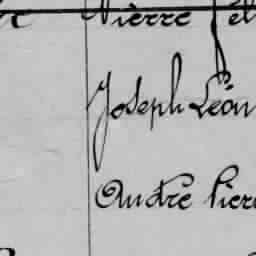 Pierre
Joseph Léon
André Pierr